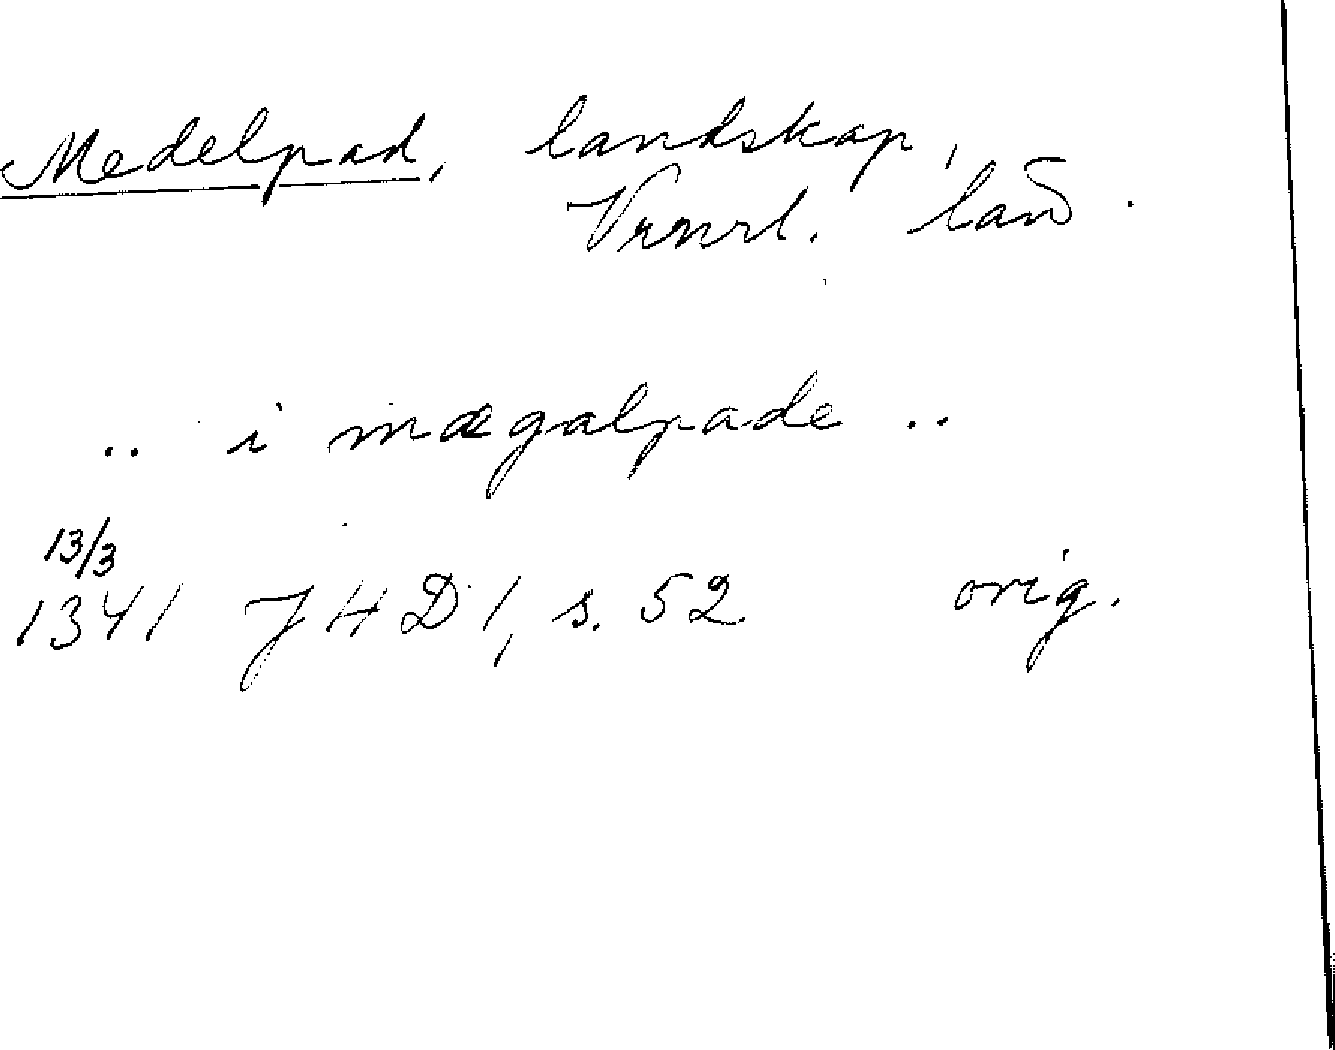 Medelpad, landskap,
Vrnrl. län.
.. i mægalpade ..
13/3
1341 JHD 1, s. 52 orig.